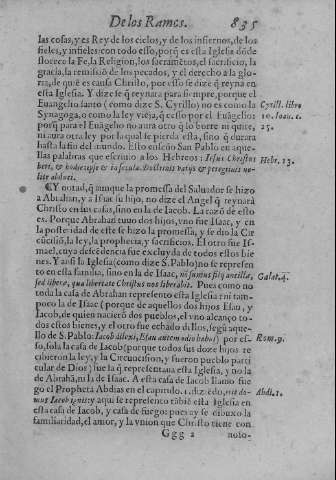 De los Ramos. 835
las cosas, y es Rey de los cielos, y de los infiernos, de los
fieles, y infieles: con todo esso, porq̃ es esta Iglesia dõde
florece la Fe, la Religion, los sacramẽtos, el sacrificio, la
gracia, la remissiõ de los pecados, y el derecho a la glo-
ria, de quẽ es causa Christo, por esso se dize q̃ reyna en
esta Iglesia. Y dize se q̃ reynara para siempre, porque el
Euangelio santo (como dize S. Cyrillo) no es como la
Synagoga, o como la ley vieja, q̃ cesso por el Euãgelio:
porq̃ para el Euãgelio no aura otro q̃ lo borre ni quite,
ni aura otra ley por la qual se pierda esta, sino q̃ durara
hasta la fin del mundo. Esto enseño San Pablo en aque-
llas palabras que escriuio a los Hebreos: Iesus Christus
heri, & hodie: ipse & in sæcula. Doctrinis varijs & peregrinis no-
lite abduci.
Cyrill. libro
10. Ioan. c.
25.
Hebr. 13.
¶ Y notad, q̃ aunque la promessa del Saluador se hizo
a Abrahan, y a Isaac su hijo, no dize el Angel q̃ reynarà
Christo en sus casas, sino en la de Iacob. La razõ de esto
es. Porque Abrahan tuuo dos hijos, vno fue Isaac, y en
la posteridad de este se hizo la promessa, y se dio la Cir
cũcisiõ, la ley, la prophecia, y sacrificios. El otro fue Is-
mael, cuya descẽdencia fue excluyda de todos estos bie
nes. Y assi la Iglesia (como dize S. Pablo) no se represen
to en esta familia, sino en la de Isaac,
sed liberæ, qua libertate Christus nos liberauit. Pues como no
toda la casa de Abrahan represento esta Iglesia ni tam-
poco la de Isaac (porque de aquellos dos hijos Esau, y
Iacob, de quien nacierõ dos pueblos, el vno alcanço to-
dos estos bienes, y el otro fue echado dellos, segũ aque-
llo de S. Pablo: Iacob dilexi, Esau autem odio habui) por es-
so, sola la casa de Iacob (porque todos sus doze hijos re
cibieron la ley, y la Circuncision, y fueron pueblo parti
cular de Dios) fue la q̃ representaua esta Iglesia, y no la
de Abrahã, ni la de Isaac. A esta casa de Iacob llamo fue
go el Propheta Abdias en el capitulo. 1. diziẽdo, erit do-
mus Iacob ignis: y aqui se represento tãbiẽ esta Iglesia en
esta casa de Iacob, y casa de fuego: pues ay se dibuxo la
familiaridad, el amor, y la vnion que Christo tiene con
Galat. 4.
Rom. 9.
Abdi. 1.
Ggg 2 noso-